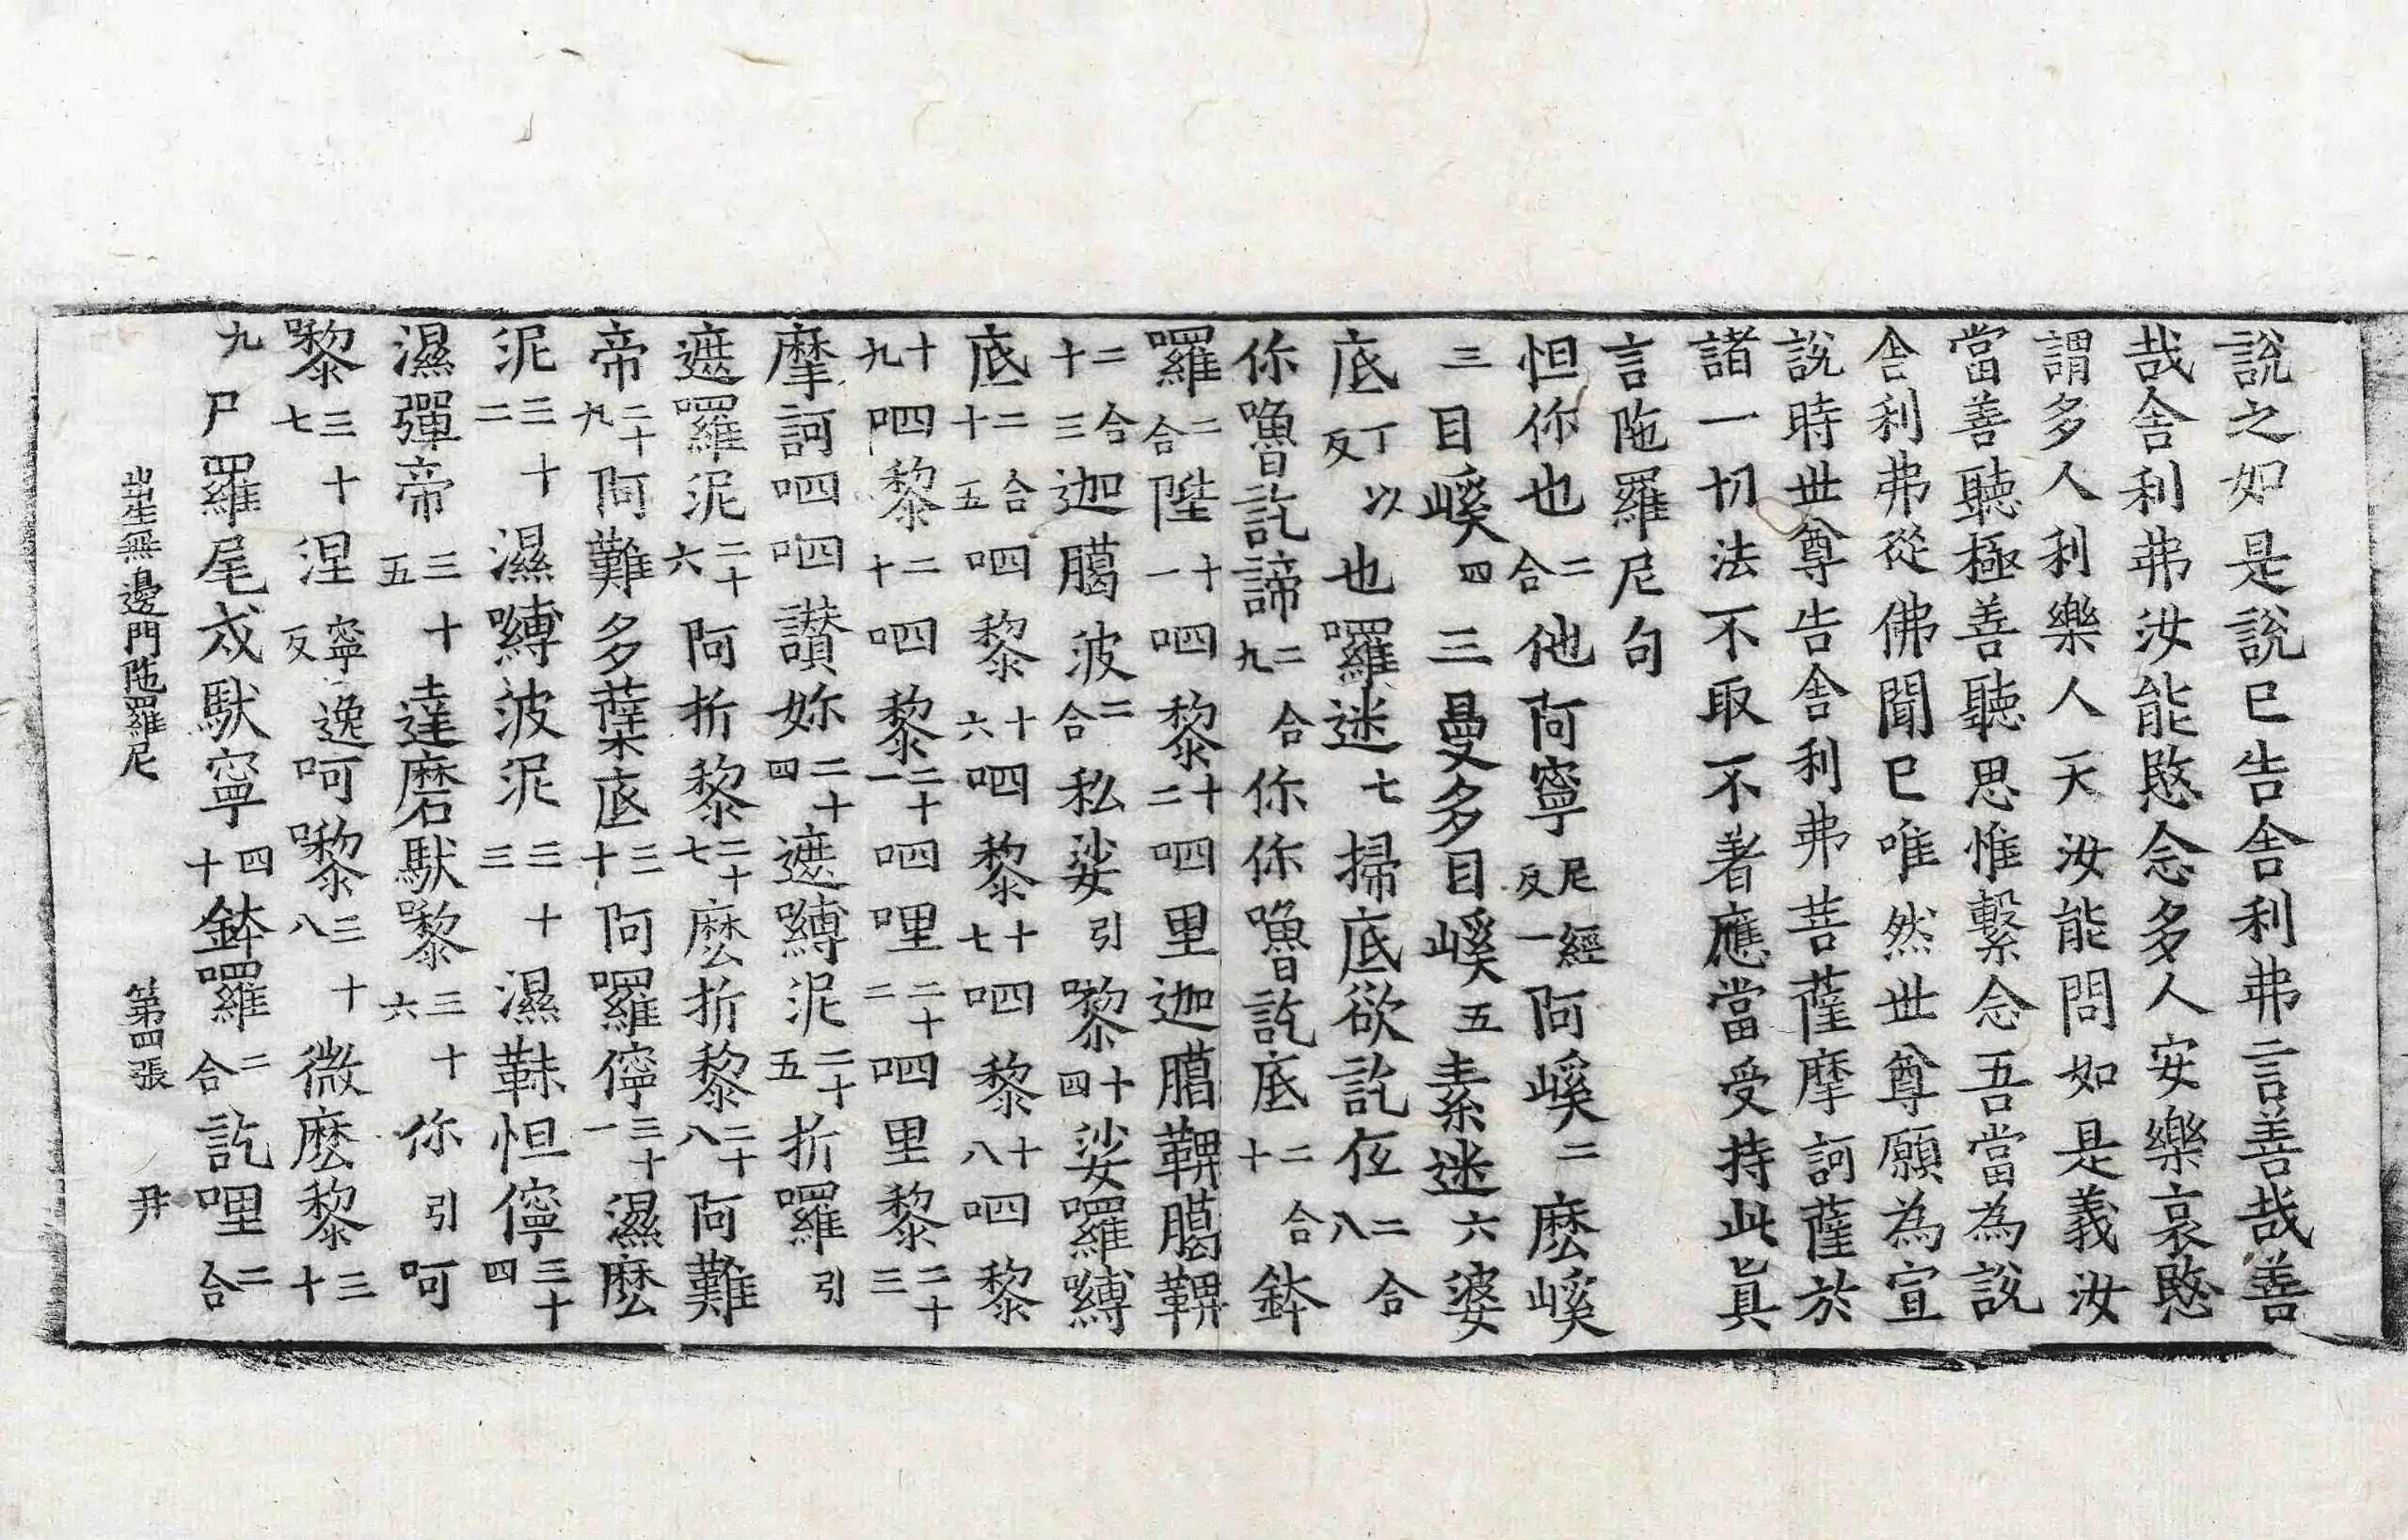 說之如是說已告舍利弗言善哉善
哉舍利弗汝能愍念多人安樂哀愍
謂多人利樂人天汝能問如是義汝
當善聽極善聽思惟繫念吾當為說
舍利弗從佛聞已唯然世尊願為宣
說時世尊告舍利弗菩薩摩訶薩於
諸一切法不取不著應當受持此真
言陁羅尼句
怛你也二合他阿寧尼經反一阿𡾼二麽𡾼
三目𡾼四三曼多目𡾼五素迷六婆
底丁以反也囉迷七掃底欲訖夜二合八
你嚕訖諦二合九你你嚕訖底二合十鉢
囉二合陛十一呬黎十二呬里迦臈鞞臈鞞
二合十三迦臈波二合私娑引嚟十四娑囉嚩
底二合十五呬黎十六呬黎十七呬黎十八呬黎
十九呬黎二十呬黎二十一呬哩二十二呬里黎二十三
摩訶呬呬讃妳二十四遮嚩泥二十五折囉引
遮囉泥二十六阿折黎二十七麽折黎二十八阿難
帝二十九阿難多蘖底三十阿囉儜三十一濕麽
泥三十二濕嚩波泥三十三濕靺怛儜三十四
濕彈帝三十五達磨馱嚟三十六你引呵
嚟三十七涅寧逸反呵嚟三十八微麽黎三十
九尸羅尾戍馱寧四十鉢囉二合訖哩二合
出生無邊門陁羅尼 第四張 尹